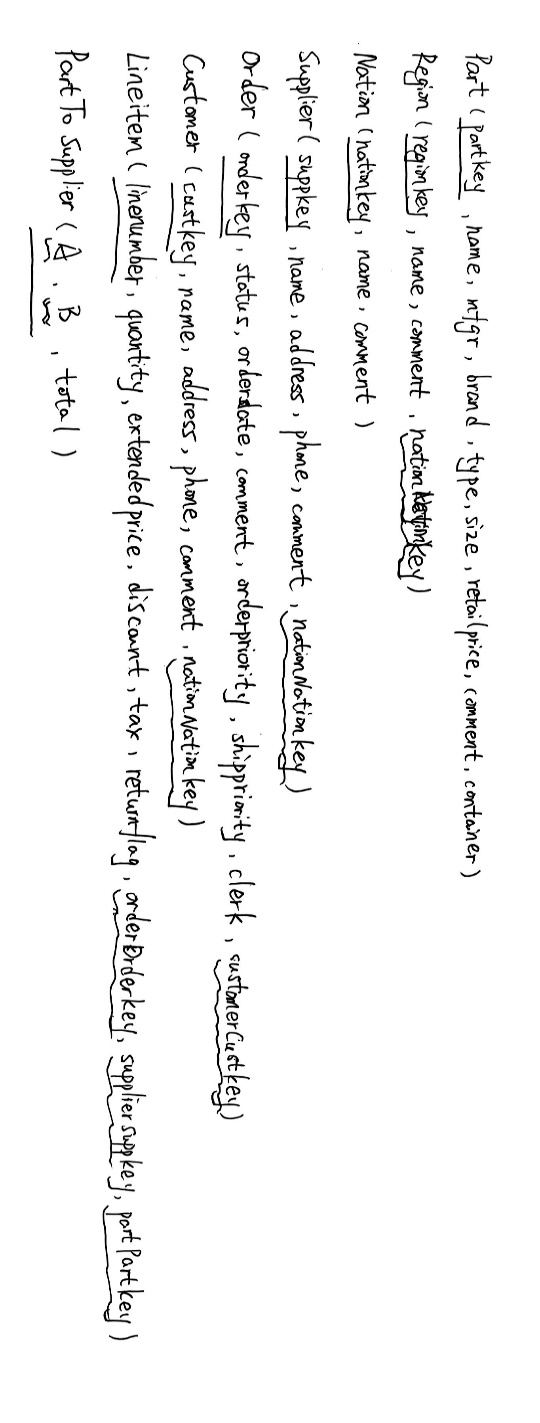 Part ( partkey , name, mfgr, brand, type, size, retailprice, comment, container )
Region ( regionkey, name, comment, nationNationkey )
Nation ( nationkey, name, comment )
Supplier ( suppkey, name, address, phone, comment, nationNationkey )
Order ( orderkey, status, orderdate, comment, orderpriority, shippriority, clerk, customerCustkey )
Customer ( custkey, name, address, phone, comment, nationNationkey )
Lineitem ( linenumber, quantity, extendedprice, discount, tax, returnflag, orderOrderkey, supplierSuppkey, partPartkey )
PartToSupplier ( A, B, total )